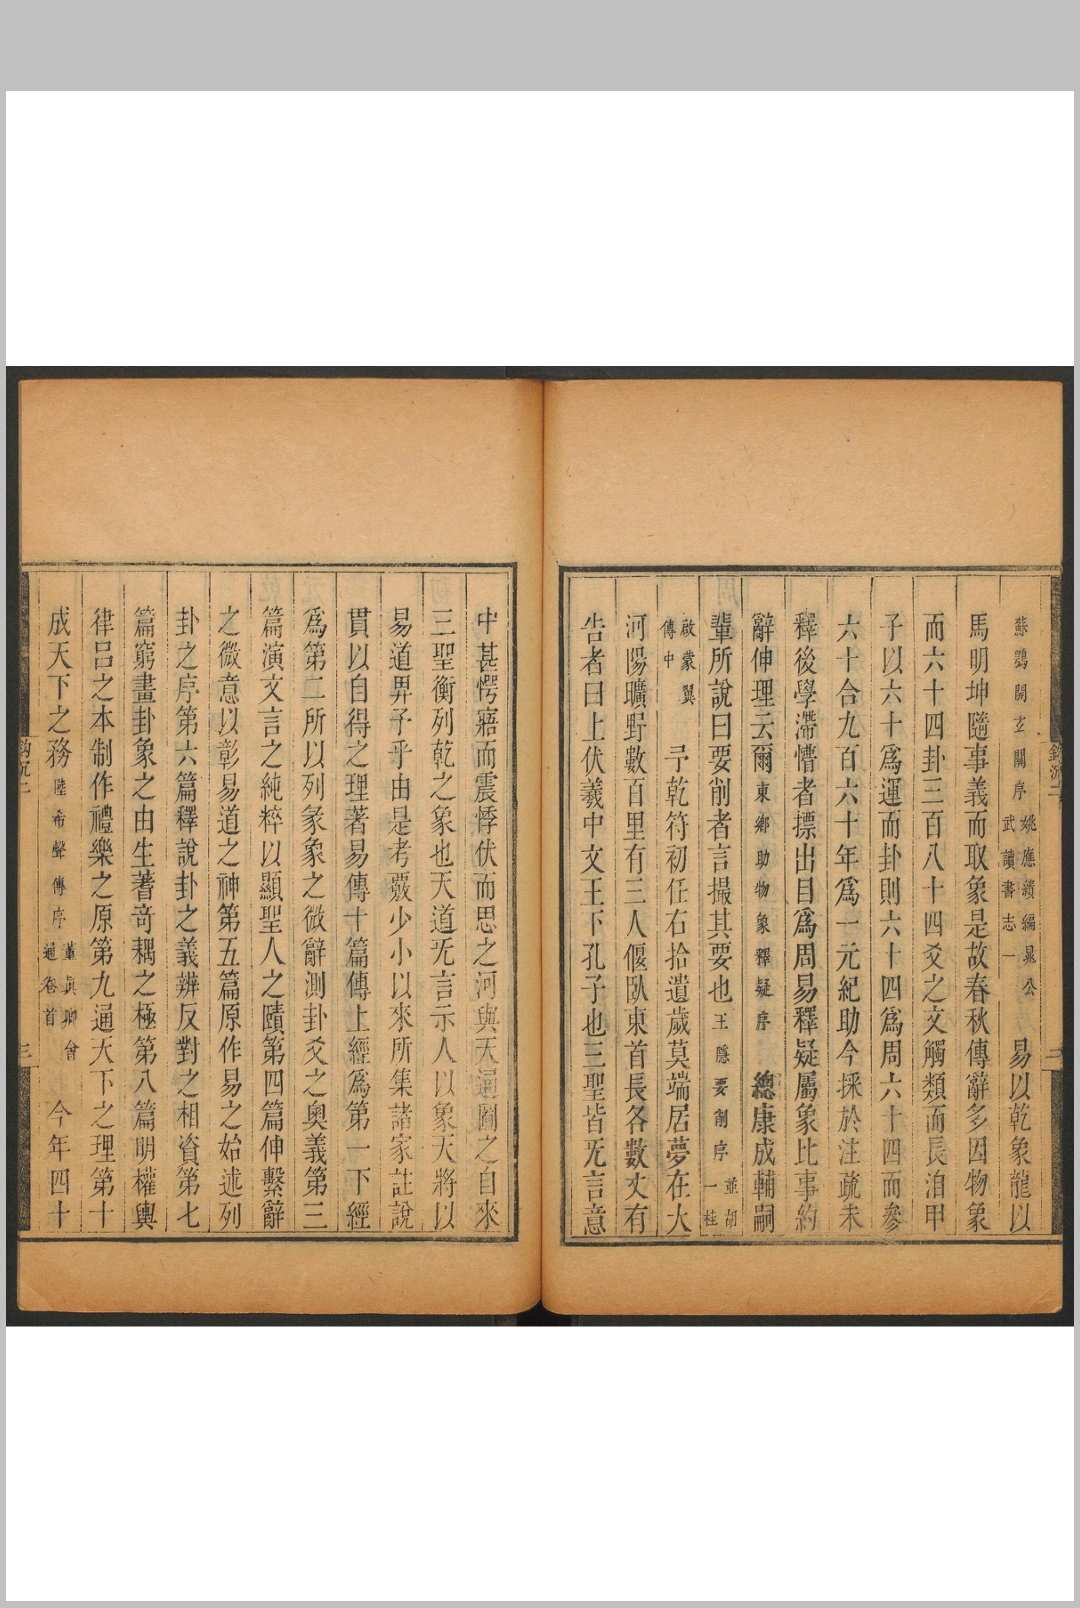 蘇鶚開玄關序 姚應績編晁公武讀書志一 易以乾象龍以
馬明坤隨事義而取象是故春秋傳辭多因物象
而六十四卦三百八十四爻之文觸類而長洎甲
子以六十爲運而卦則六十四爲周六十四而參
六十合九百六十年爲一元紀助今採於注疏未
釋後學滯懵者摽出目爲周易釋疑屬象比事約
辭伸理云爾 東鄉助物象釋疑序 總康成輔嗣
輩所說曰要削者言撮其要也 王隱要削序 董胡一桂
啟蒙翼傳中 予乾符初任右拾遺歲莫端居夢在大
河陽曠野數百里有三人偃臥東首長各數丈有
告者曰上伏羲中文王下孔子也三聖皆无言意
中甚愕寤而震悸伏而思之河與天通圖之自來
三聖衡列乾之象也天道无言示人以象天將以
易道畀予乎由是考覈少小以來所集諸家註說
貫以自得之理著易傳十篇傳上經爲第一下經
爲第二所以列彖象之微辭測卦爻之奧義第三
篇演文言之純粹以顯聖人之賾第四篇伸繫辭
之微意以彰易道之神第五篇原作易之始述列
卦之序第六篇釋說卦之義辨反對之相資第七
篇窮畫卦象之由生蓍竒耦之極第八篇明權輿
律呂之本制作禮樂之原第九通天下之理第十
成天下之務 陸希聲傳序 董眞卿會通卷首 今年四十